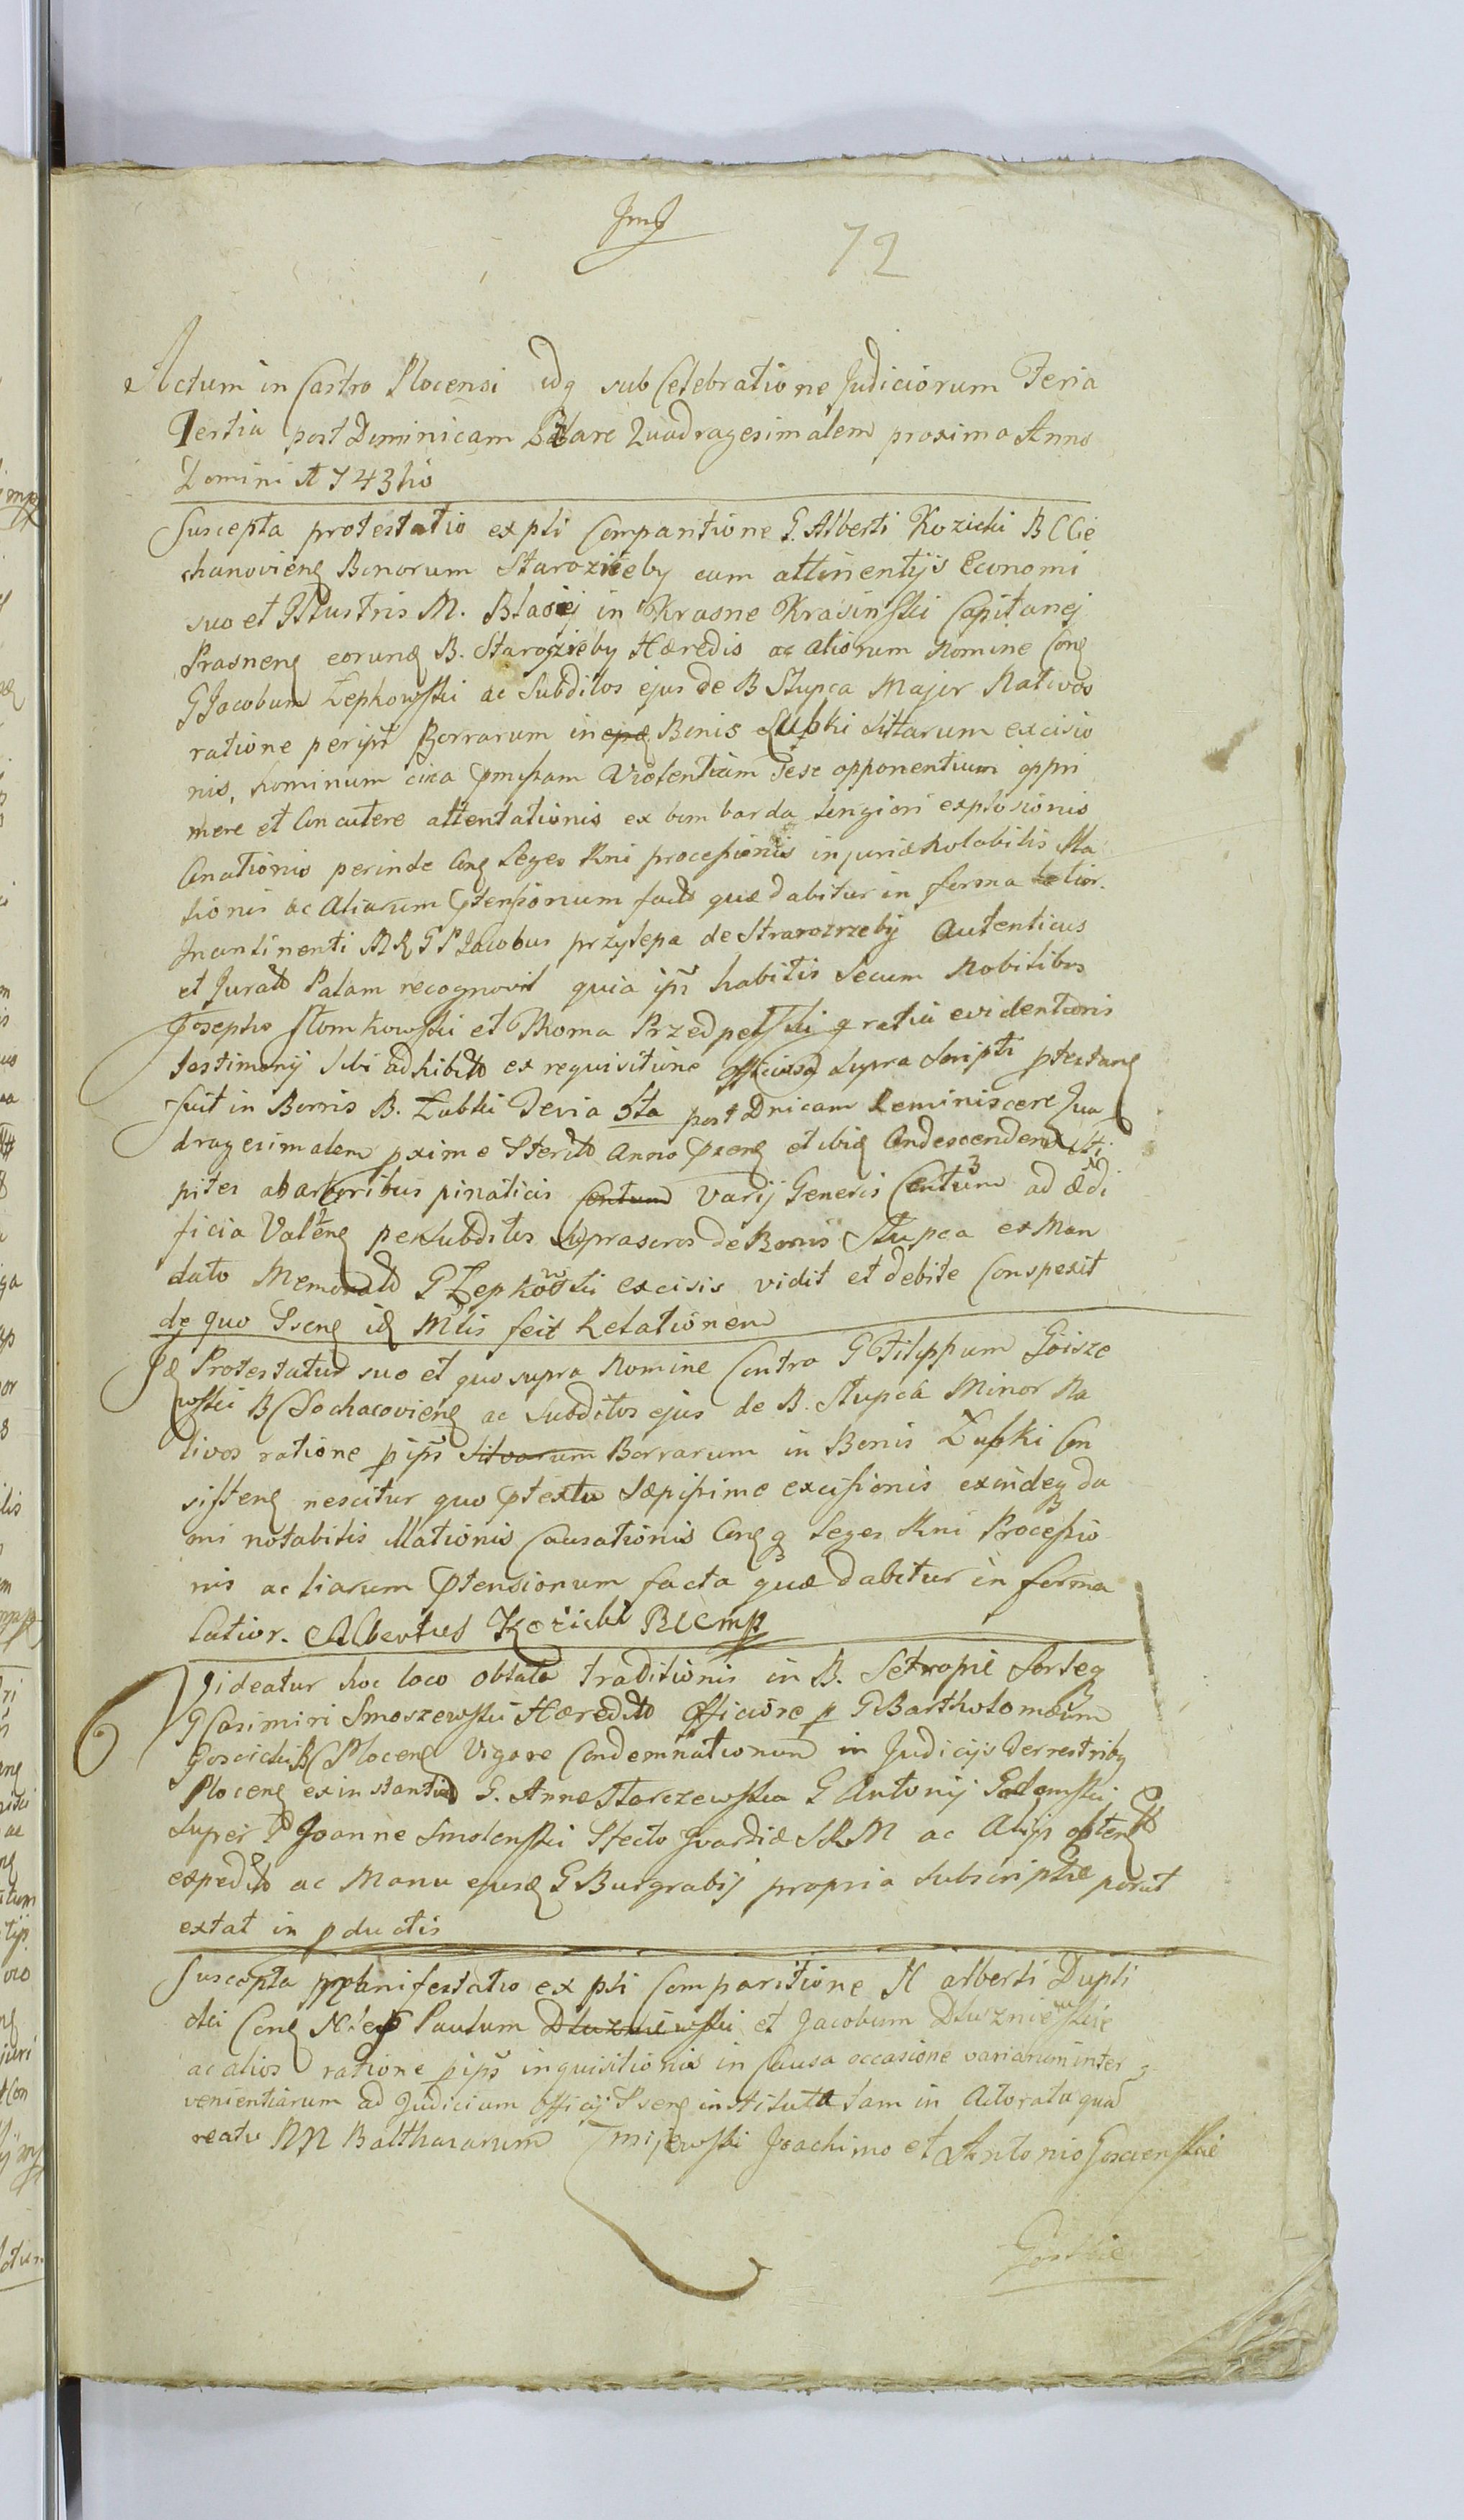 JmJ
72
Actum in Castro Plocensi idq sub Celebratione Judiciorum Feria
Tertia post Dominicam Quadragesimalem proxima Anno
Domini 1743tio
Suscepta protestatio ex pti Comparitione G. Alberti Kozicki B C Cie
chanovieng Bonorum Starozreby cum attinentijs Economi
suo et Illustris M. Blasij in Krasne Krasinski Capitanej
Prasneng eorund B. Starozreby Hæredis ac aliorum Nomine Cong
G Jacobum Zepkowski ac Subditos ejus de B Slupca Major Nativos
ratione per ips Borrarum in Bonis Lubki sittarum excisio
nis, hominum circa pmissam Violentiam sese opponentium oppri
mere et Concutere attentationis ex bombarda longiori explosionis
Cnationis perinde Cong Leges Rni processionis injuriæ Notabilis Illa
tionis ac Aliarum ptensionum facto quæ dabitur in forma latior.
Incontinenti M R G P Jacobus Przylepa de Starozrzeby Autenticus
et Jurato Palam recognovit quia ips habitis Secum Nobilibus
Josepho Slomkowski et Thoma Przedpelski gratia evidentioris
testimonij sibi adhibito ex requisitione Officiosa Supra Scripti ptestang
fuit in Borris B. Lubki Feria 5ta post Dnicam Reminiscere Qua
dragesimalem pxime Sterito Anno pxeng et ibiq Condescendendo Sti
pites ab arboribus pinaticis Centum varij Generis Centum ad ædi
ficia Valeng per Subditos Suprascros de Bonis Slupca ex Man
dato Memorato G Zepkowski excisis vidit et debite Conspexit
de quo Sseng id Mtis feit Relationem
Id Protestatur suo et quo supra Nomine Contra G Filippum Goisze
wski B C Sochacovieng ac Subditos ejus de B. Slupca Minor Na
tivos ratione p ips Silvarum Borrarum in Bonis Lupki Con
sisteng nescitur quo ptextu Sæpissime excissionis exindeq da
mi notabilis illationis Causationis Cong q Leges Rni Processio
nis ac liarum ptensionum facta quæ dabitur in forma
latior. Albertus Kozicki BCC mp
Videatur hoc loco oblata traditionis in B. Setropie Sorteq
G Casimiri Smoszewski Hæredito Officiose p G Bartholomæum
Goscicki B C Ploceng Vigore Condemnationum in Judicijs Terrestribq
Ploceng ex instantia G. Annæ Starczewska G Antonij
Super G Joanne Smolenski Stecto Gvardiæ S R M ac Alijs obteng
expedito ac Manu ejusd G Burgrabij propria Subscriptæ porut
extat in pductis
Suscepta manifestatio ex pti Comparitione N alberti Dupli
cki Cong N Paulum Dluzniewski et Jacobum Dluzniewskie
ac alios ratione p ips inquisitionis in Causa occasione variarum inter
venientiarum ad Judicium Officij Sseng instituta tam in Actoratu qua
reatu NN Balthasarum Zmijewski Joachimo et Antonio Goscienskie
Goskie